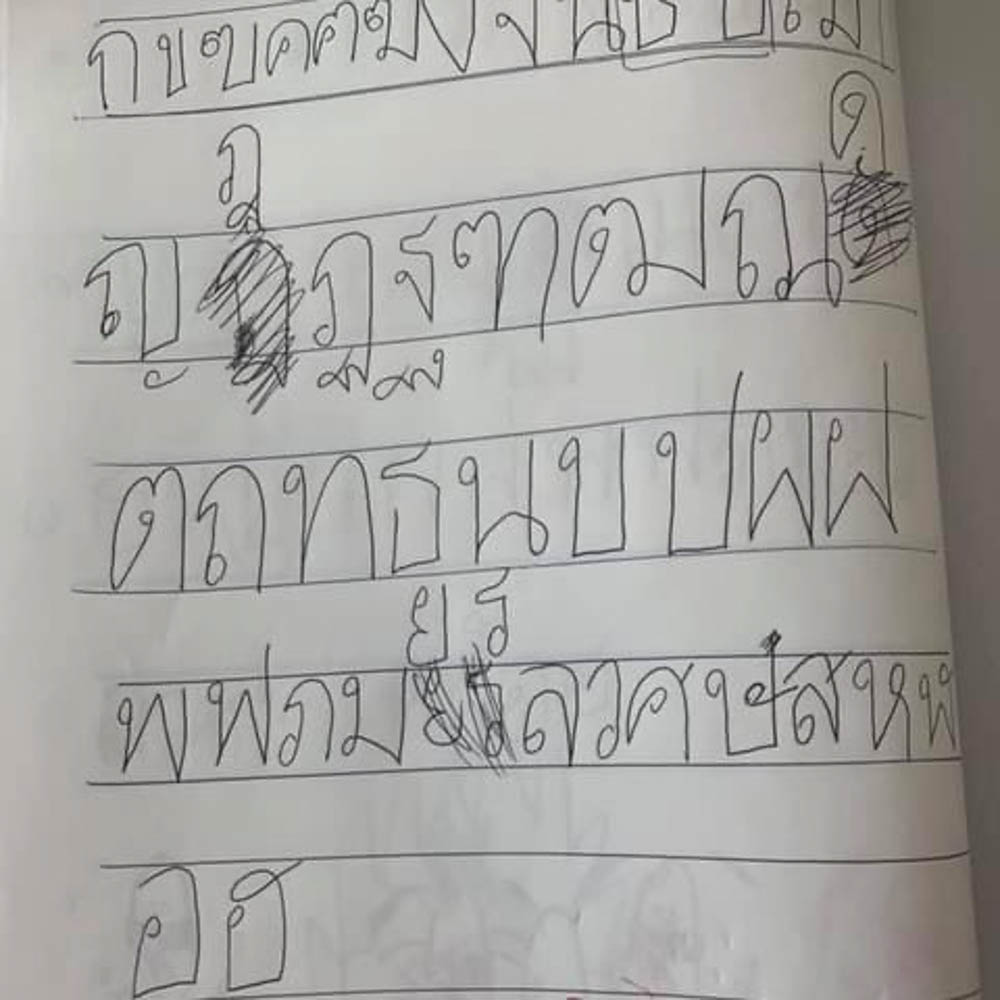 ก ข ฃ ค ฅ ฆ ง จ ฉ
ญ ฎ ฏ ฐ ฑ ฒ ณ ด
ต ถ ท ธ น บ ป ผ ฝ
พ ฟ ภ ม ย ร ล ว ศ ษ ส ห ฬ
อ ฮ